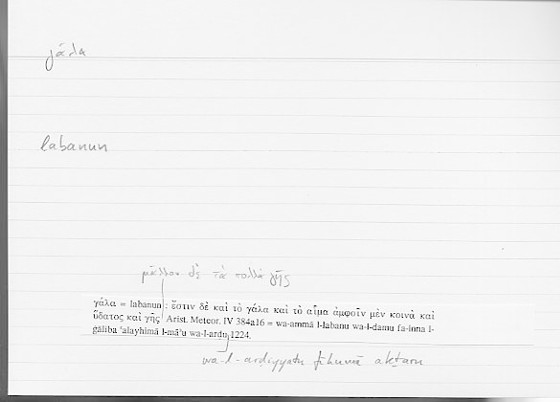 γάλα
labanun
μᾶλλον δὲ τὰ πολλὰ γῆς
γάλα = labanun : ἔστιν δὲ καὶ τὸ γάλα καὶ τὸ αἷμα ἀμφοῖν μὲν κοινὰ καὶ
ὕδατος καὶ γῆς Arist. Meteor. IV 384a16 = wa-ammā l-labanu wa-l-damu fa-inna l-
ġāliba ʿalayhimā l-māʾu wa-l-arḍu 1224,
wa-l-arḍiyyatu fīhimā akṯaru